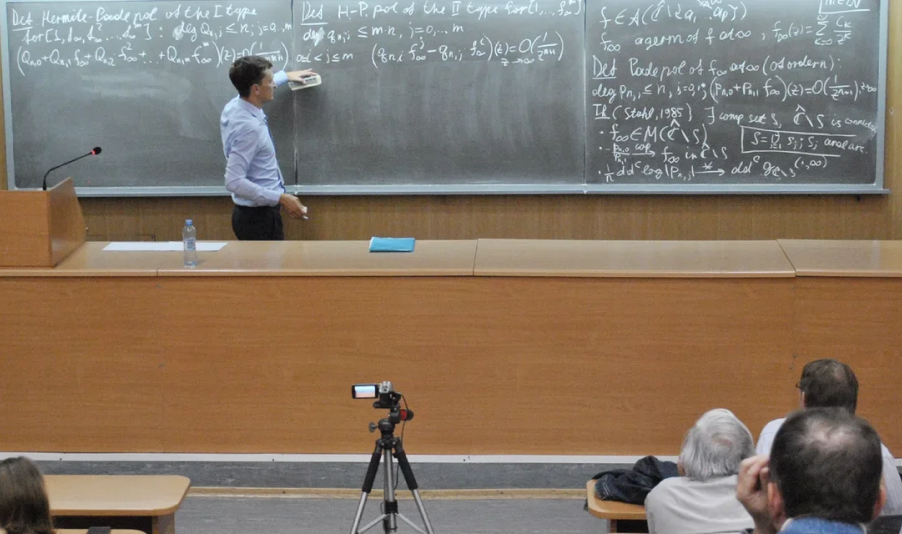 Def Hermite-Pade pol of the I type
for [1, f∞, f²∞, ..., fᵐ∞] : deg Qn,j ≤ n; j=0..m
(Qn,0+Qn,1 f∞+Qn,2 f²∞+...+Qn,m fᵐ∞)(z)=O(
Def H-P. pol of the II type for [1,...,fᵐ∞]
deg qn,j ≤ mn, j=0,..m
(qn, f∞ - qn, f∞)(z)=O(1/zⁿ⁺¹)
z→∞
f∈A(Ĉ\{a₁...ap})
f∞ a germ of f at ∞, f∞(z)=Σ cₖ/zᵏ
Def Pade pol of f∞ at ∞ (of order n):
deg pn,j ≤ n, j=0,1; (pn,0+pn,1 f∞)(z)=O(1/zⁿ⁺¹), z→∞
Th (Stahl, 1985) ∃ comp set S, Ĉ\S is connected
• f∞∈M(Ĉ\S)
S=∪ Sj; Sj anal arc.
• -pn,0/pn,1 cap→ f∞ in Ĉ\S
• 1/n ddᶜ log|pn,1| *→ ddᶜ gĈ\S(·,∞)